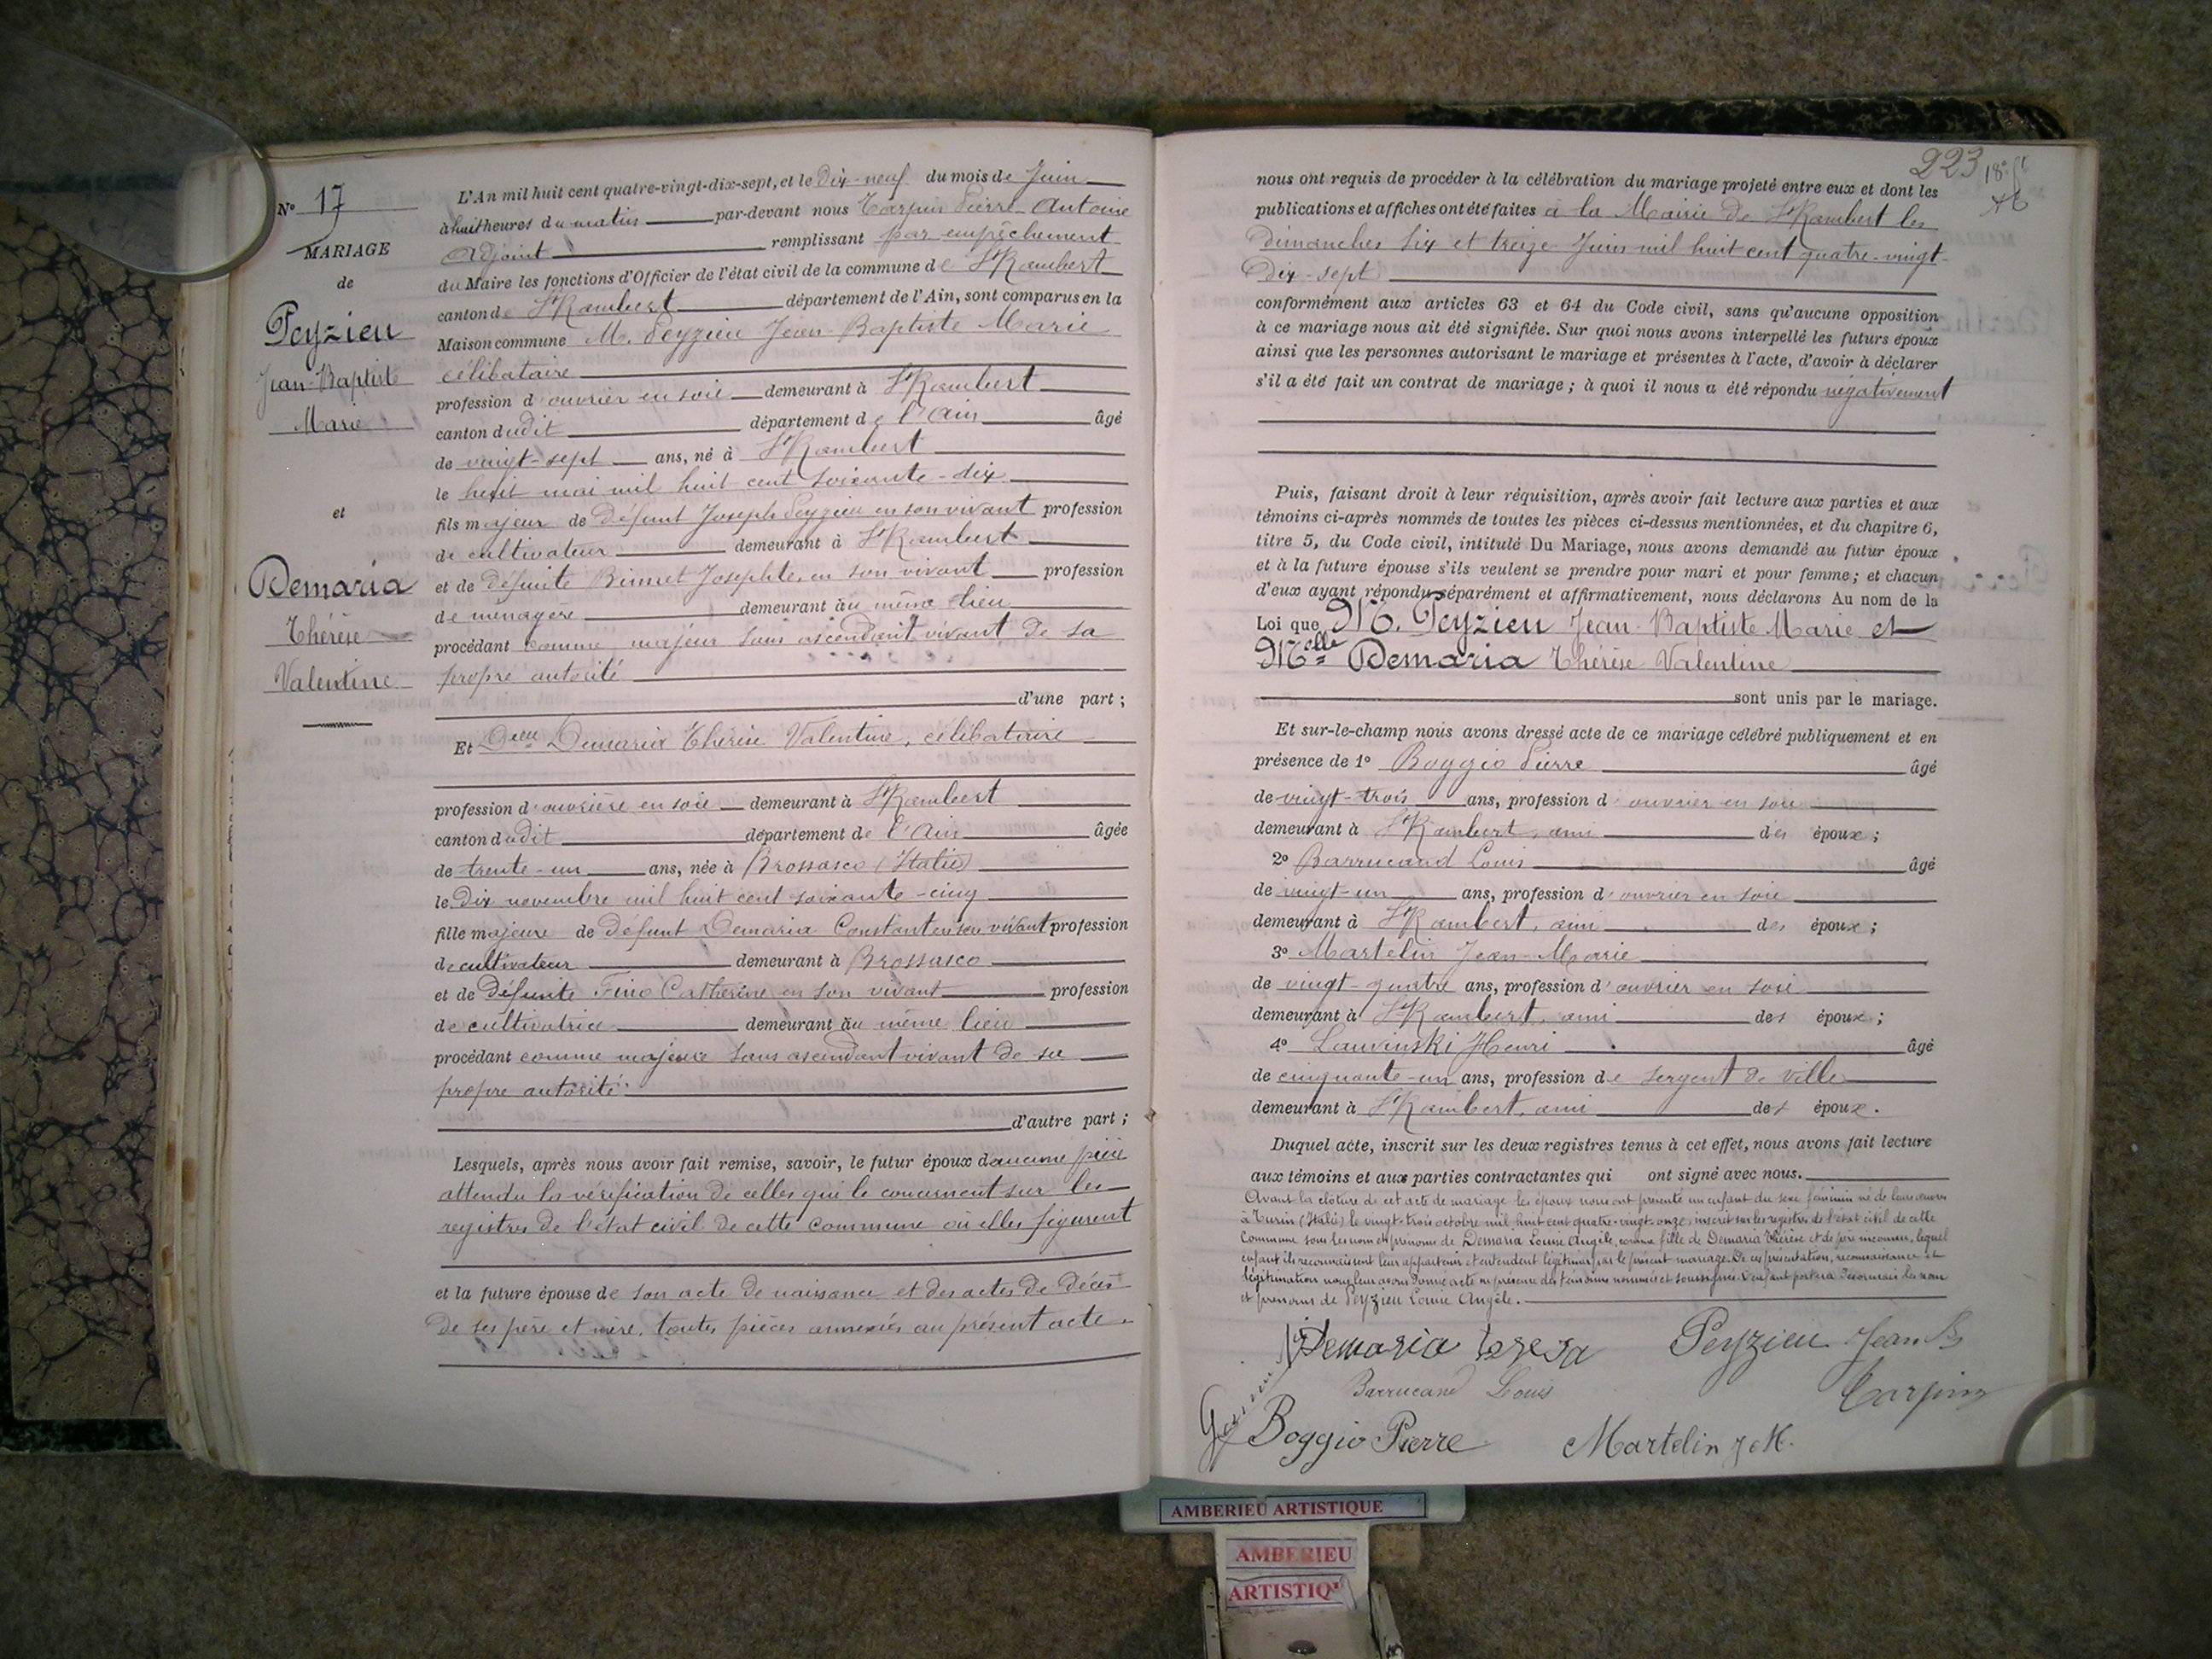 N° 17
MARIAGE
de
Peyzieu
Jean-Baptiste
Marie
et
Demaria
Thérèse
Valentine
L'An mil huit cent quatre-vingt-dix-sept, et le Dix-neuf du mois de Juin
à huit heures du matin par-devant nous Tarpin Pierre-Antoine
Adjoint remplissant par empêchement
du Maire les fonctions d'Officier de l'état civil de la commune de St Rambert
canton de St Rambert département de l'Ain, sont comparus en la
Maison commune M. Peyzieu Jean-Baptiste Marie
célibataire
profession d'ouvrier en soie demeurant à St Rambert
canton dudit département de l'Ain âgé
de vingt-sept ans, né à St Rambert
le huit mai mil huit cent soixante-dix
fils majeur de défunt Joseph Peyzieu en son vivant profession
de cultivateur demeurant à St Rambert
et de défunte Josephte, en son vivant profession
de ménagère demeurant au même lieu
procédant comme majeur sans ascendant vivant de sa
propre autorité
d'une part ;
Et Delle Demaria Thérèse Valentine, célibataire
profession d'ouvrière en soie demeurant à St Rambert
canton dudit département de l'Ain âgée
de trente-un ans, née à Brossasco (Italie)
le dix novembre mil huit cent soixante-cinq
fille majeure de défunt Demaria Constant en son vivant profession
de cultivateur demeurant à Brossasco
et de défunte Fino Catherine en son vivant profession
de cultivatrice demeurant au même lieu
procédant comme majeure sans ascendant vivant de sa
propre autorité
d'autre part ;
Lesquels, après nous avoir fait remise, savoir, le futur époux d'aucune pièce
attendu la vérification de celles qui le concernent sur les
registres de l'état civil de cette commune où elles figurent
et la future épouse de son acte de naissance et des actes de décès
de ses père et mère, toutes pièces annexées au présent acte.
223
nous ont requis de procéder à la célébration du mariage projeté entre eux et dont les
publications et affiches ont été faites à la Mairie de St Rambert les
dimanches six et treize Juin mil huit cent quatre-vingt-
dix-sept
conformément aux articles 63 et 64 du Code civil, sans qu'aucune opposition
à ce mariage nous ait été signifiée. Sur quoi nous avons interpellé les futurs époux
ainsi que les personnes autorisant le mariage et présentes à l'acte, d'avoir à déclarer
s'il a été fait un contrat de mariage ; à quoi il nous a été répondu négativement
Puis, faisant droit à leur réquisition, après avoir fait lecture aux parties et aux
témoins ci-après nommés de toutes les pièces ci-dessus mentionnées, et du chapitre 6,
titre 5, du Code civil, intitulé Du Mariage, nous avons demandé au futur époux
et à la future épouse s'ils veulent se prendre pour mari et pour femme ; et chacun
d'eux ayant répondu séparément et affirmativement, nous déclarons Au nom de la
Loi que M. Peyzieu Jean-Baptiste Marie et
Melle Demaria Thérèse Valentine
sont unis par le mariage.
Et sur-le-champ nous avons dressé acte de ce mariage célébré publiquement et en
présence de 1° Boggio Pierre âgé
de vingt-trois ans, profession d'ouvrier en soie
demeurant à St Rambert, ami des époux ;
2° Barrucand Louis âgé
de vingt-un ans, profession d'ouvrier en soie
demeurant à St Rambert, ami des époux ;
3° Martelin Jean-Marie
de vingt-quatre ans, profession d'ouvrier en soie
demeurant à St Rambert, ami des époux ;
4° Lauvinski Henri âgé
de cinquante-un ans, profession de sergent de ville
demeurant à St Rambert, ami des époux.
Duquel acte, inscrit sur les deux registres tenus à cet effet, nous avons fait lecture
aux témoins et aux parties contractantes qui ont signé avec nous.
Avant la clôture de cet acte de mariage les époux nous ont présenté un enfant du sexe féminin né de leurs œuvres
à Turin (Italie) le vingt-trois octobre mil huit cent quatre-vingt-onze, inscrit sur les registres de l'état civil de cette
Commune sous les nom et prénoms de Demaria Louise Angèle, comme fille de Demaria Thérèse et de père inconnu, lequel
enfant ils reconnaissent leur appartenir et entendent légitimer par le présent mariage. De ces présentation, reconnaissance et
légitimation nous leur avons donné acte en présence des témoins nommés et soussignés. L'enfant portera désormais les nom
et prénoms de Peyzieu Louise Angèle.
Demaria teresa
Peyzieu Jean B
Barrucand Louis
Tarpin
Boggio Pierre
Martelin J M.
AMBERIEU ARTISTIQUE
AMBERIEU
ARTISTIQ